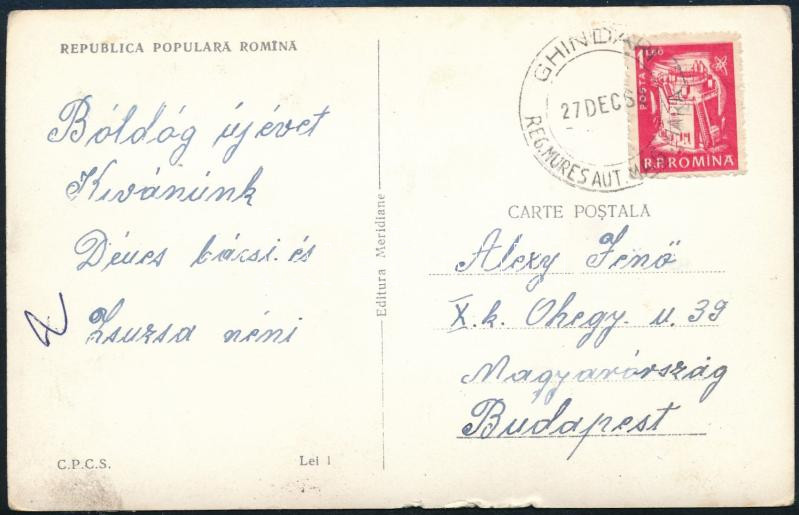 REPUBLICA POPULARĂ ROMÎNĂ
Bóldóg újévet
Kivánúnk
Déncs bácsi és
Zsuzsa néni
C.P.C.S.
Lei 1
Editura Meridiane
GHINDARI
27 DEC 6
REG. MUREȘ AUT. MAGHIARĂ
1 LEO
POSTA
R.P.ROMINA
CARTE POȘTALĂ
Alexy Jenő
X.k. Ohegy. u. 39
Magyarórszág
Budapest